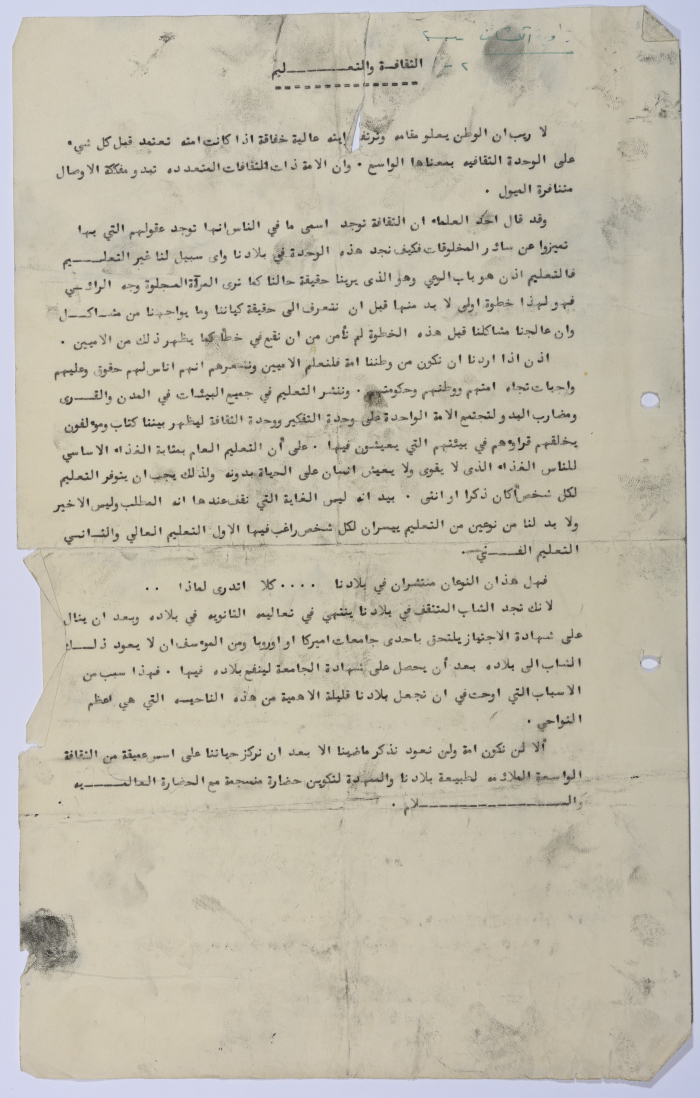 ٢ -
الثقافة والتعـــــــليم
لا ريب ان الوطن يعلو مقامه وترتفع رايته عالية خفاقة اذا كانت امته تعتمد قبل كل شيء
على الوحدة الثقافيه بمعناها الواسع . وان الامة ذات الثقافات المتعدده تبدو مفككة الاوصال
متنافرة الميول .
وقد قال احد العلماء ان الثقافة توجد اسمى ما في الناس انها توجد عقولهم التي بها
تميزوا عن سائر المخلوقات فكيف نجد هذه الوحدة في بلادنا واى سبيل لنا غير التعلـــيم
فالتعليم اذن هو باب الوعي وهو الذى يرينا حقيقة حالنا كما نرى المرآة المجلوة وجه الرائـي
فهو لهذا خطوة اولى لا بد منها قبل ان نتعرف الى حقيقة كياننا وما يواجهنا من مشـاكـل
وان عالجنا مشاكلنا قبل هذه الخطوة لم نأمن من ان نقع في خطأ كما يظهر ذلك من الاميين .
اذن اذا اردنا ان نكون من وطننا امة فلنعلم الاميين ونشعرهم انهم اناس لهم حقوق وعليهم
واجبات تجاه امتهم ووطنهم وحكومتهم . وننشر التعليم في جميع البيئات في المدن والقـرى
ومضارب البدو لتجتمع الامة الواحدة على وحدة التفكير ووحدة الثقافة ليظهر بيننا كتاب ومؤلفون
يخلقهم قراؤهم في بيئتهم التي يعيشون فيها . على أن التعليم العام بمثابة الغذاء الاساسي
للناس الغذاء الذى لا يقوى ولا يعيش انسان على الحياة بدونه ولذلك يجب ان يتوفر التعليم
لكل شخص أكان ذكرا او انثى . بيد انه ليس الغاية التي نقف عندها انه المطلب وليس الاخير
ولا بد لنا من نوعين من التعليم ييسران لكل شخص راغب فيها الاول التعليم العالي والثـانـي
التعليم الفـــني .
فهل هذان النوعان منتشران في بلادنا .... كلا اتدرى لماذا ..
لانك تجد الشاب المثقف في بلادنا ينتهي في تعاليمه الثانويه في بلاده وبعد ان ينال
على شهادة الاجتياز يلتحق باحدى جامعات اميركا او اوروبا ومن المؤسف ان لا يعود ذلـك
الشاب الى بلاده بعد أن يحصل على شهادة الجامعة لينفع بلاده فيها . فهذا سبب من
الاسباب التي اوحت في ان تجعل بلادنا قليلة الاهمية من هذه الناحيه التي هي اعظم
النواحي .
ألا لن نكون امة ولن نعود نذكر ماضينا الا بعد ان نركز حياتنا على اسس عميقة من الثقافة
الواسعة الملائمه لطبيعة بلادنا والممهدة لتكوين حضارة منسجمة مع الحضارة العالمـــيه
والســـــــــــــــــلام .